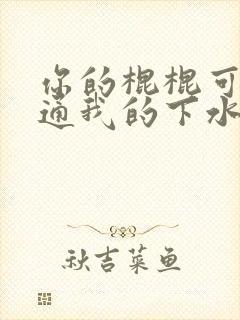 你的棍棍可
通我的下水
秋吉菜鱼